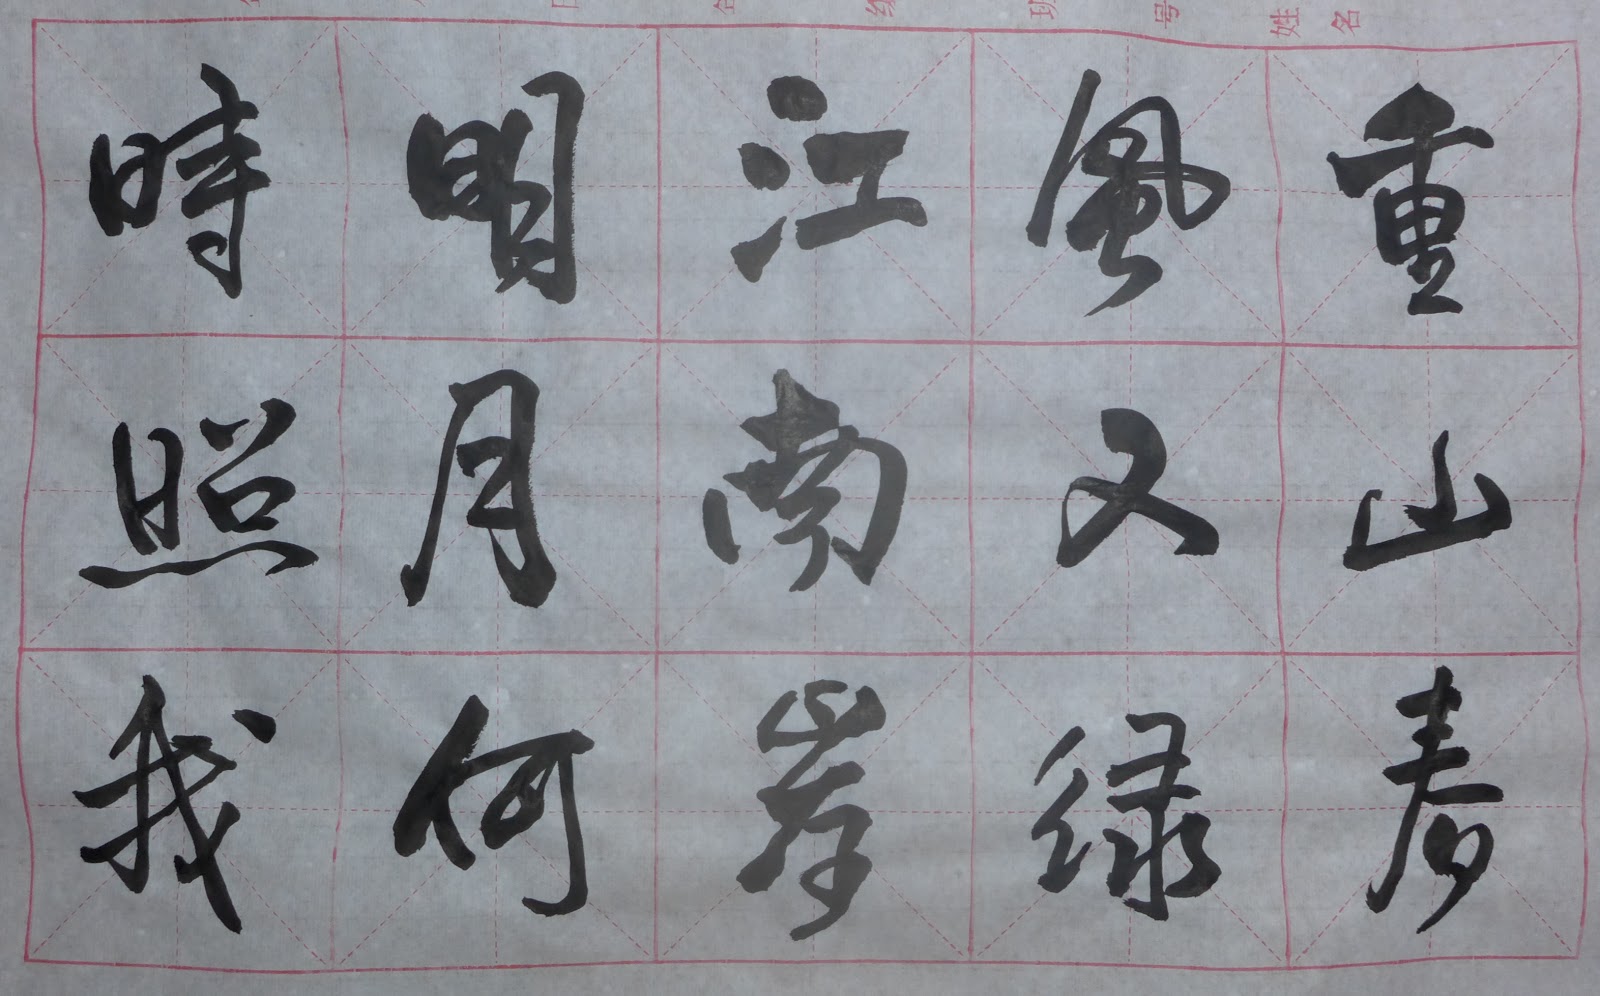 重山春
風又绿
江南岸
明月何
時照我
班 号 姓名